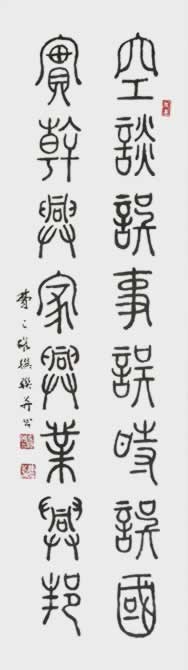 空談誤事誤時誤國
實幹興家興業興邦